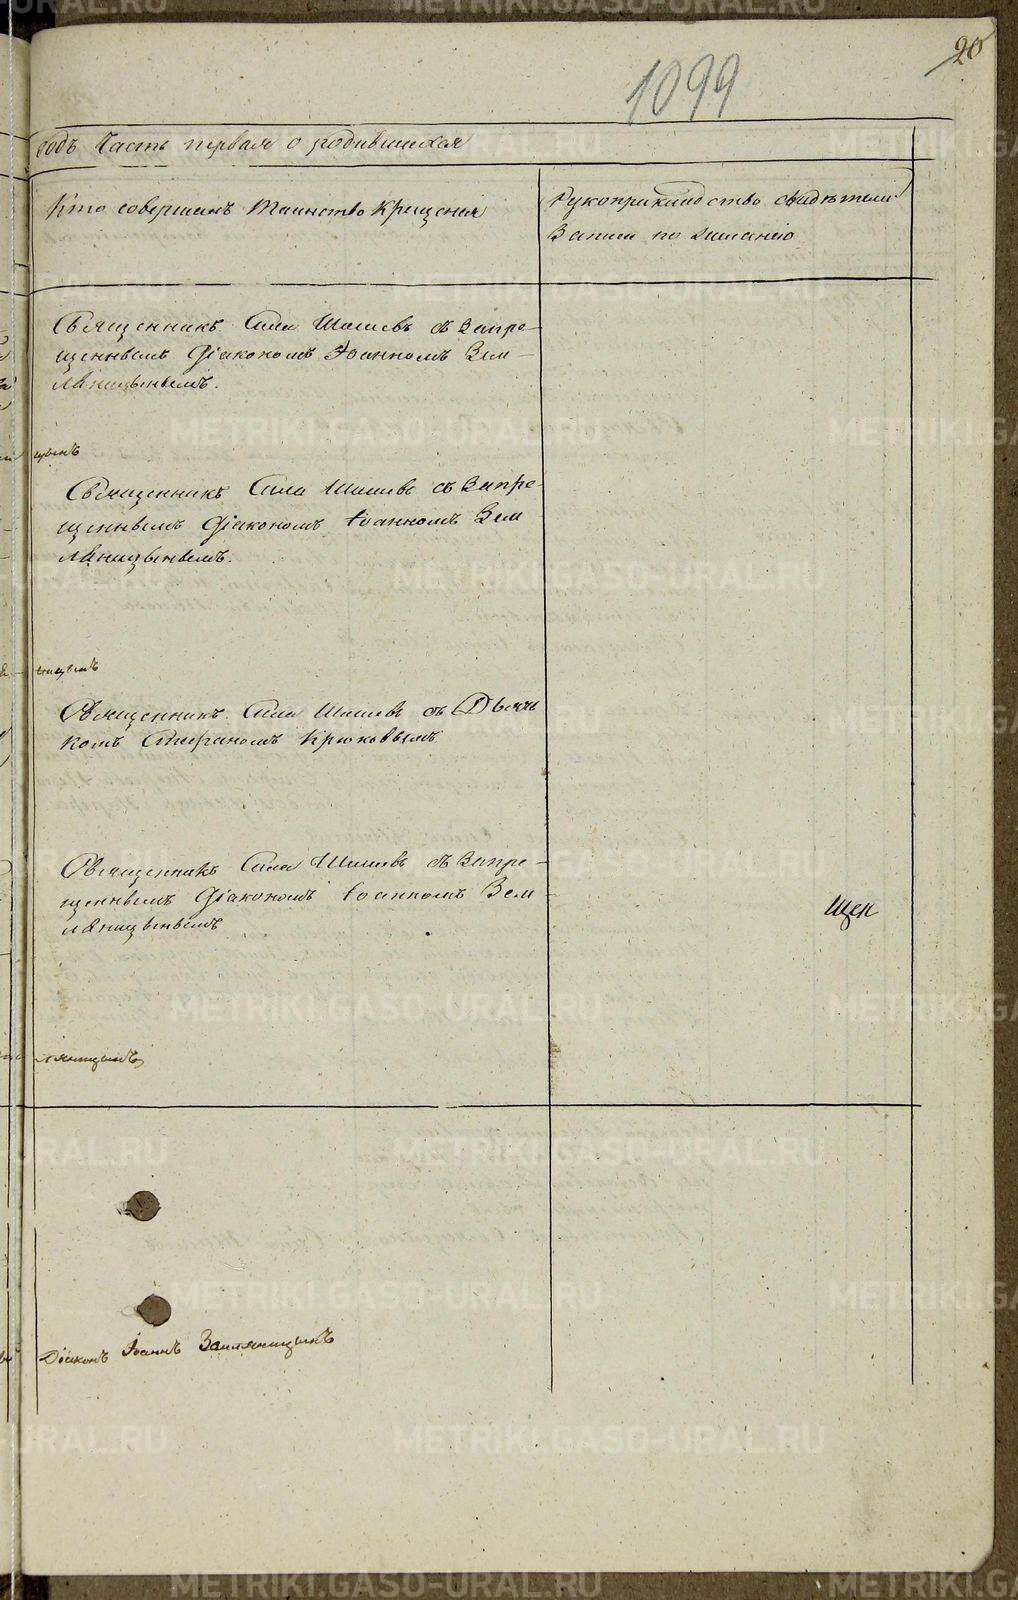 20
1099
годъ Часть первая о родившихся
Кто совершалъ Таинство Крещения
Рукоприкладство свидѣтелей
Записи по желанію
Священникъ Сила Шишевъ съ Запре-
щеннымъ Діакономъ Іоанномъ Зем-
ляницынымъ.
цынъ
Священникъ Сила Шишевъ съ Запре
щеннымъ Діакономъ Іоанномъ Зем
ляницынымъ.
ницынъ
Священникъ Сила Шишевъ съ Дьяч
комъ Стефаномъ Крюковымъ.
Священникъ Сила Шишевъ съ Запре-
щеннымъ Діакономъ Іоанномъ Зем-
ляницынымъ
Щен
ляницынъ
Діаконъ Іоаннъ Земляницынъ
METRIKI.GASO-URAL.RU